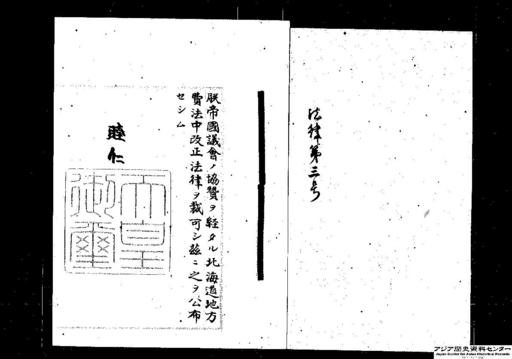 法律第三号
朕帝國議會ノ協賛ヲ經タル北海道地方
費法中改正法律ヲ裁可シ茲ニ之ヲ公布
セシム
睦仁
天皇
御璽
アジア歴史資料センター
Japan Center for Asian Historical Records